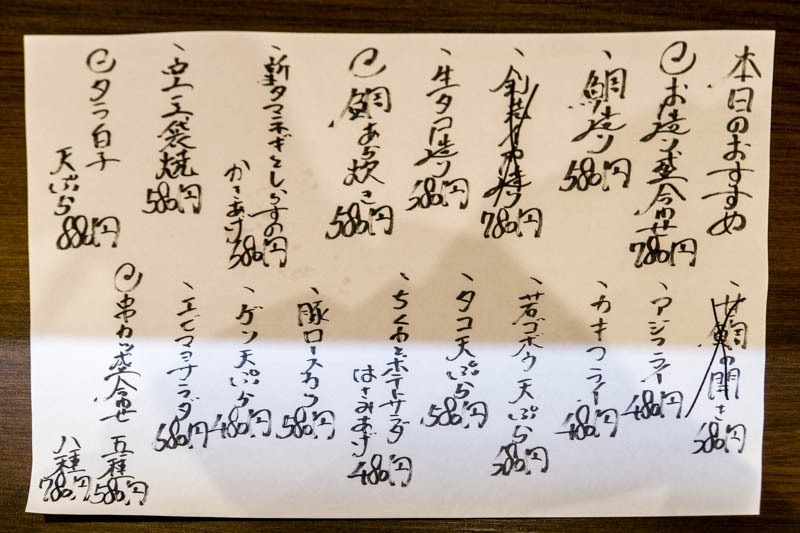 本日のおすすめ
お造り盛合わせ 780円
、鯛造り 580円
780円
、生タコ造り 580円
鯛あら炊き 580円
、新タマネギとしらすの
かきあげ 580円
袋焼 580円
タラ白子
天ぷら 880円
開き 580円
、アジフライ 480円
、カキフライ 480円
、若ゴボウ天ぷら 580円
、タコ天ぷら 580円
、ちくわとポテトサラダ
はさみあげ 480円
、豚ロースカツ 580円
、ゲソ天ぷら 480円
、エビマヨサラダ 580円
串カツ盛合わせ 五種 580円
八種 780円